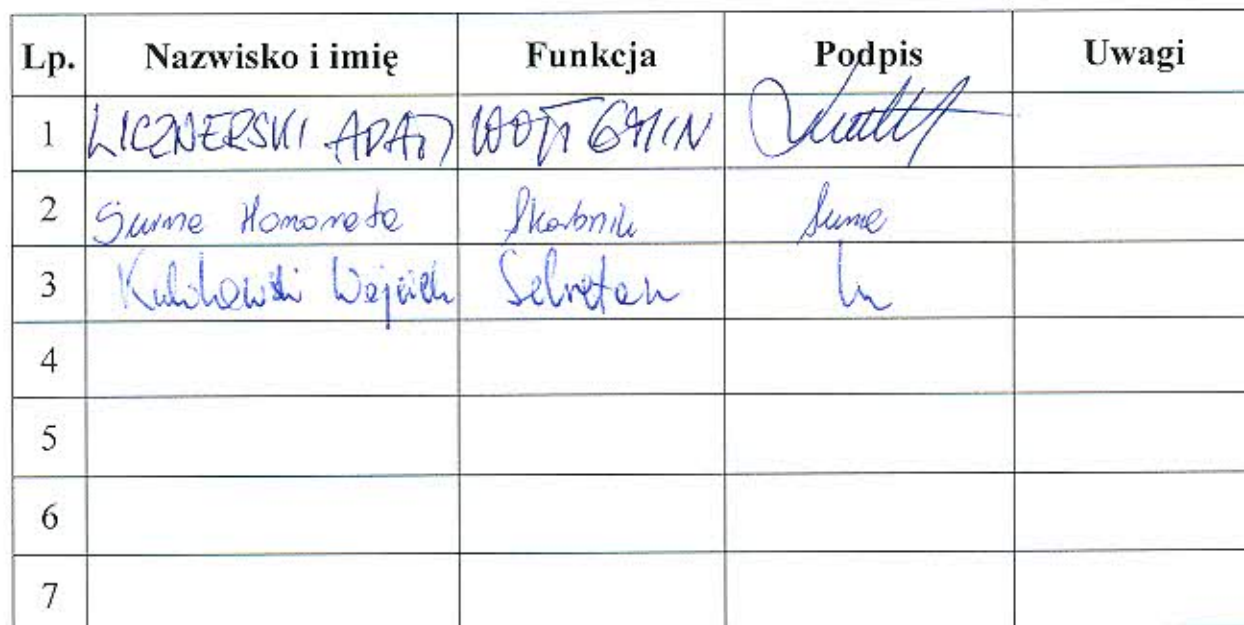 Lp. Nazwisko i imię Funkcja Podpis Uwagi
1 LICZNERSKI ADAM WÓJT GMIN
2 Surma Honorata Skarbnik
3 Kulikowski Wojciech Sekretarz
4
5
6
7